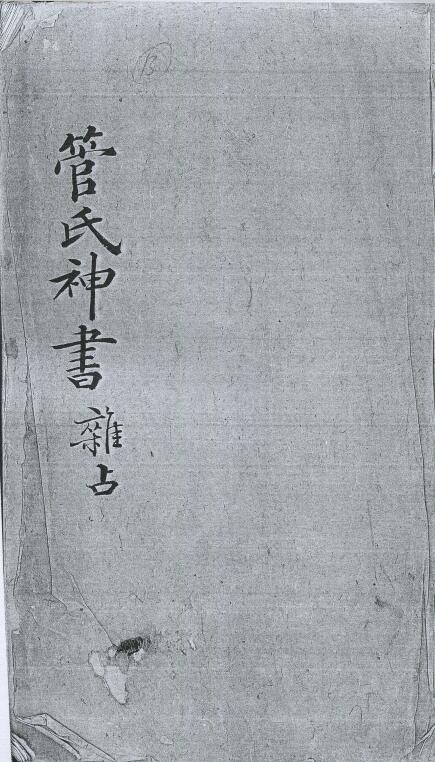 管氏神書 雜占
13